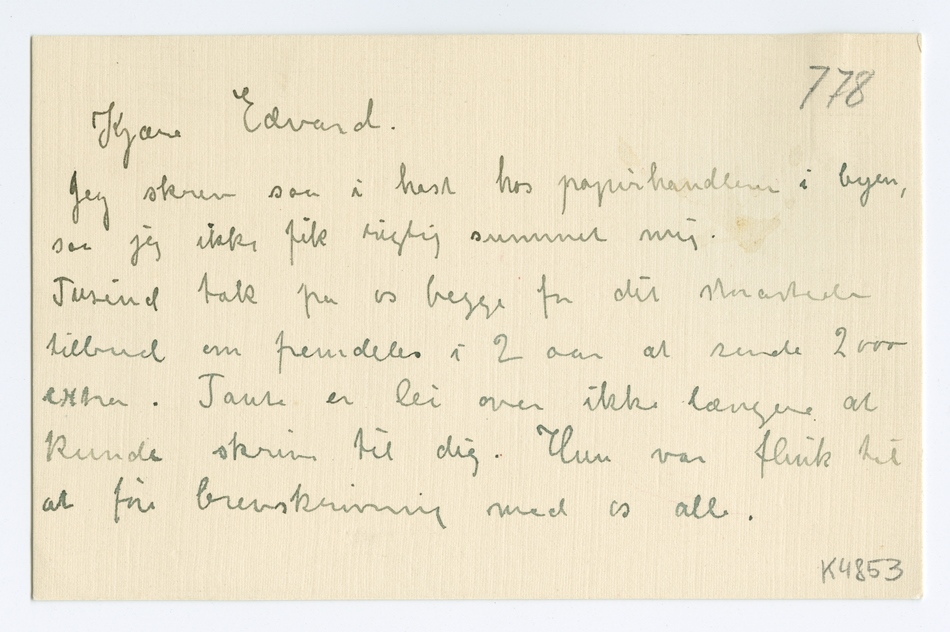 778
Kjære Edvard.
Jeg skrev saa i hast hos papirhandleren i byen,
saa jeg ikke fik rigtig summet mig.
Tusind tak fra os begge for dit storartede
tilbud om fremdeles i 2 aar at sende 2000
extra. Tante er lei over ikke længere at
kunde skrive til dig. Hun var flink til
at føre brevskrivning med os alle.
K4853